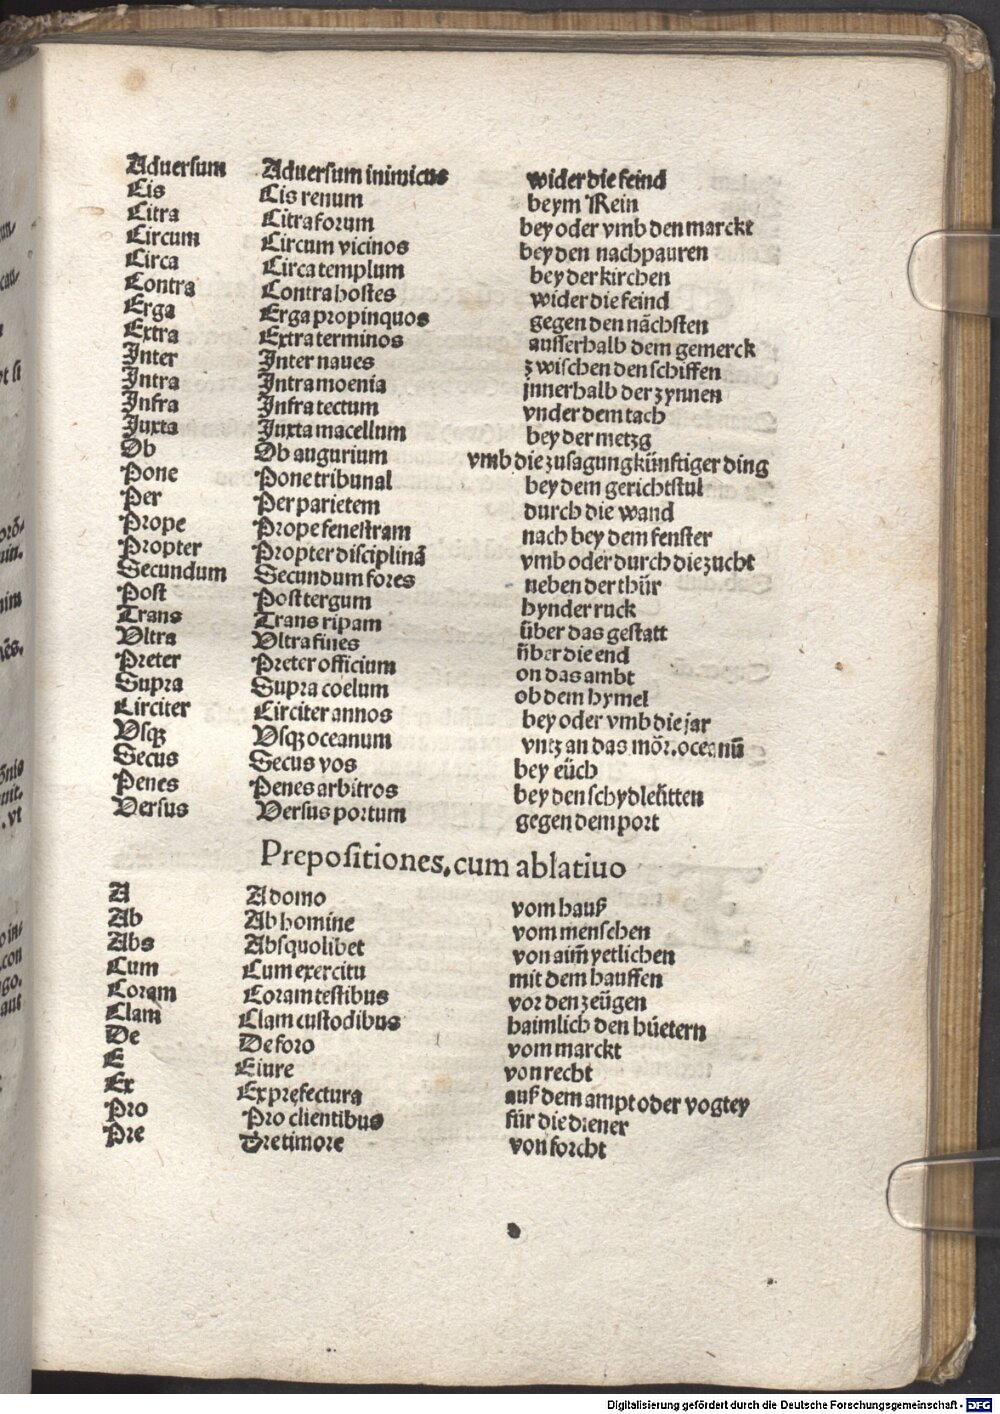 Aduersum Aduersum inimicus wider die feind
Cis Cis renum beym Rein
Citra Citra forum bey oder vmb den marckt
Circum Circum vicinos bey den nachpauren
Circa Circa templum bey der kirchen
Contra Contra hostes wider die feind
Erga Erga propinquos gegen den nächsten
Extra Extra terminos ausserhalb dem gemerck
Inter Inter naues zwischen den schiffen
Intra Intra moenia jnnerhalb der zynnen
Infra Infra tectum vnder dem tach
Juxta Juxta macellum bey der metzg
Ob Ob augurium vmb die zusagung künftiger ding
Pone Pone tribunal bey dem gerichtstul
Per Per parietem durch die wand
Prope Prope fenestram nach bey dem fenster
Propter Propter disciplinā vmb oder durch die zucht
Secundum Secundum fores neben der thür
Post Post tergum hynder ruck
Trans Trans ripam über das gestatt
Vltra Vltra fines über die end
Preter Preter officium on das ambt
Supra Supra coelum ob dem hymel
Circiter Circiter annos bey oder vmb die jar
Vsqꝫ Vsqꝫ oceanum vntz an das mör. oceanū
Secus Secus vos bey eüch
Penes Penes arbitros bey den schydleütten
Versus Versus portum gegen dem port
Prepositiones. cum ablatiuo
A A domo vom hauß
Ab Ab homine vom menschen
Abs Abs quolibet von aim̄ yetlichen
Cum Cum exercitu mit dem hauffen
Coram Coram testibus vor den zeügen
Clam Clam custodibus haimlich den hüetern
De De foro vom marckt
E E iure von recht
Ex Ex pręfectura auß dem ampt oder vogtey
Pro Pro clientibus für die diener
Pre Pre timore von forcht
Digitalisierung gefördert durch die Deutsche Forschungsgemeinschaft - DFG